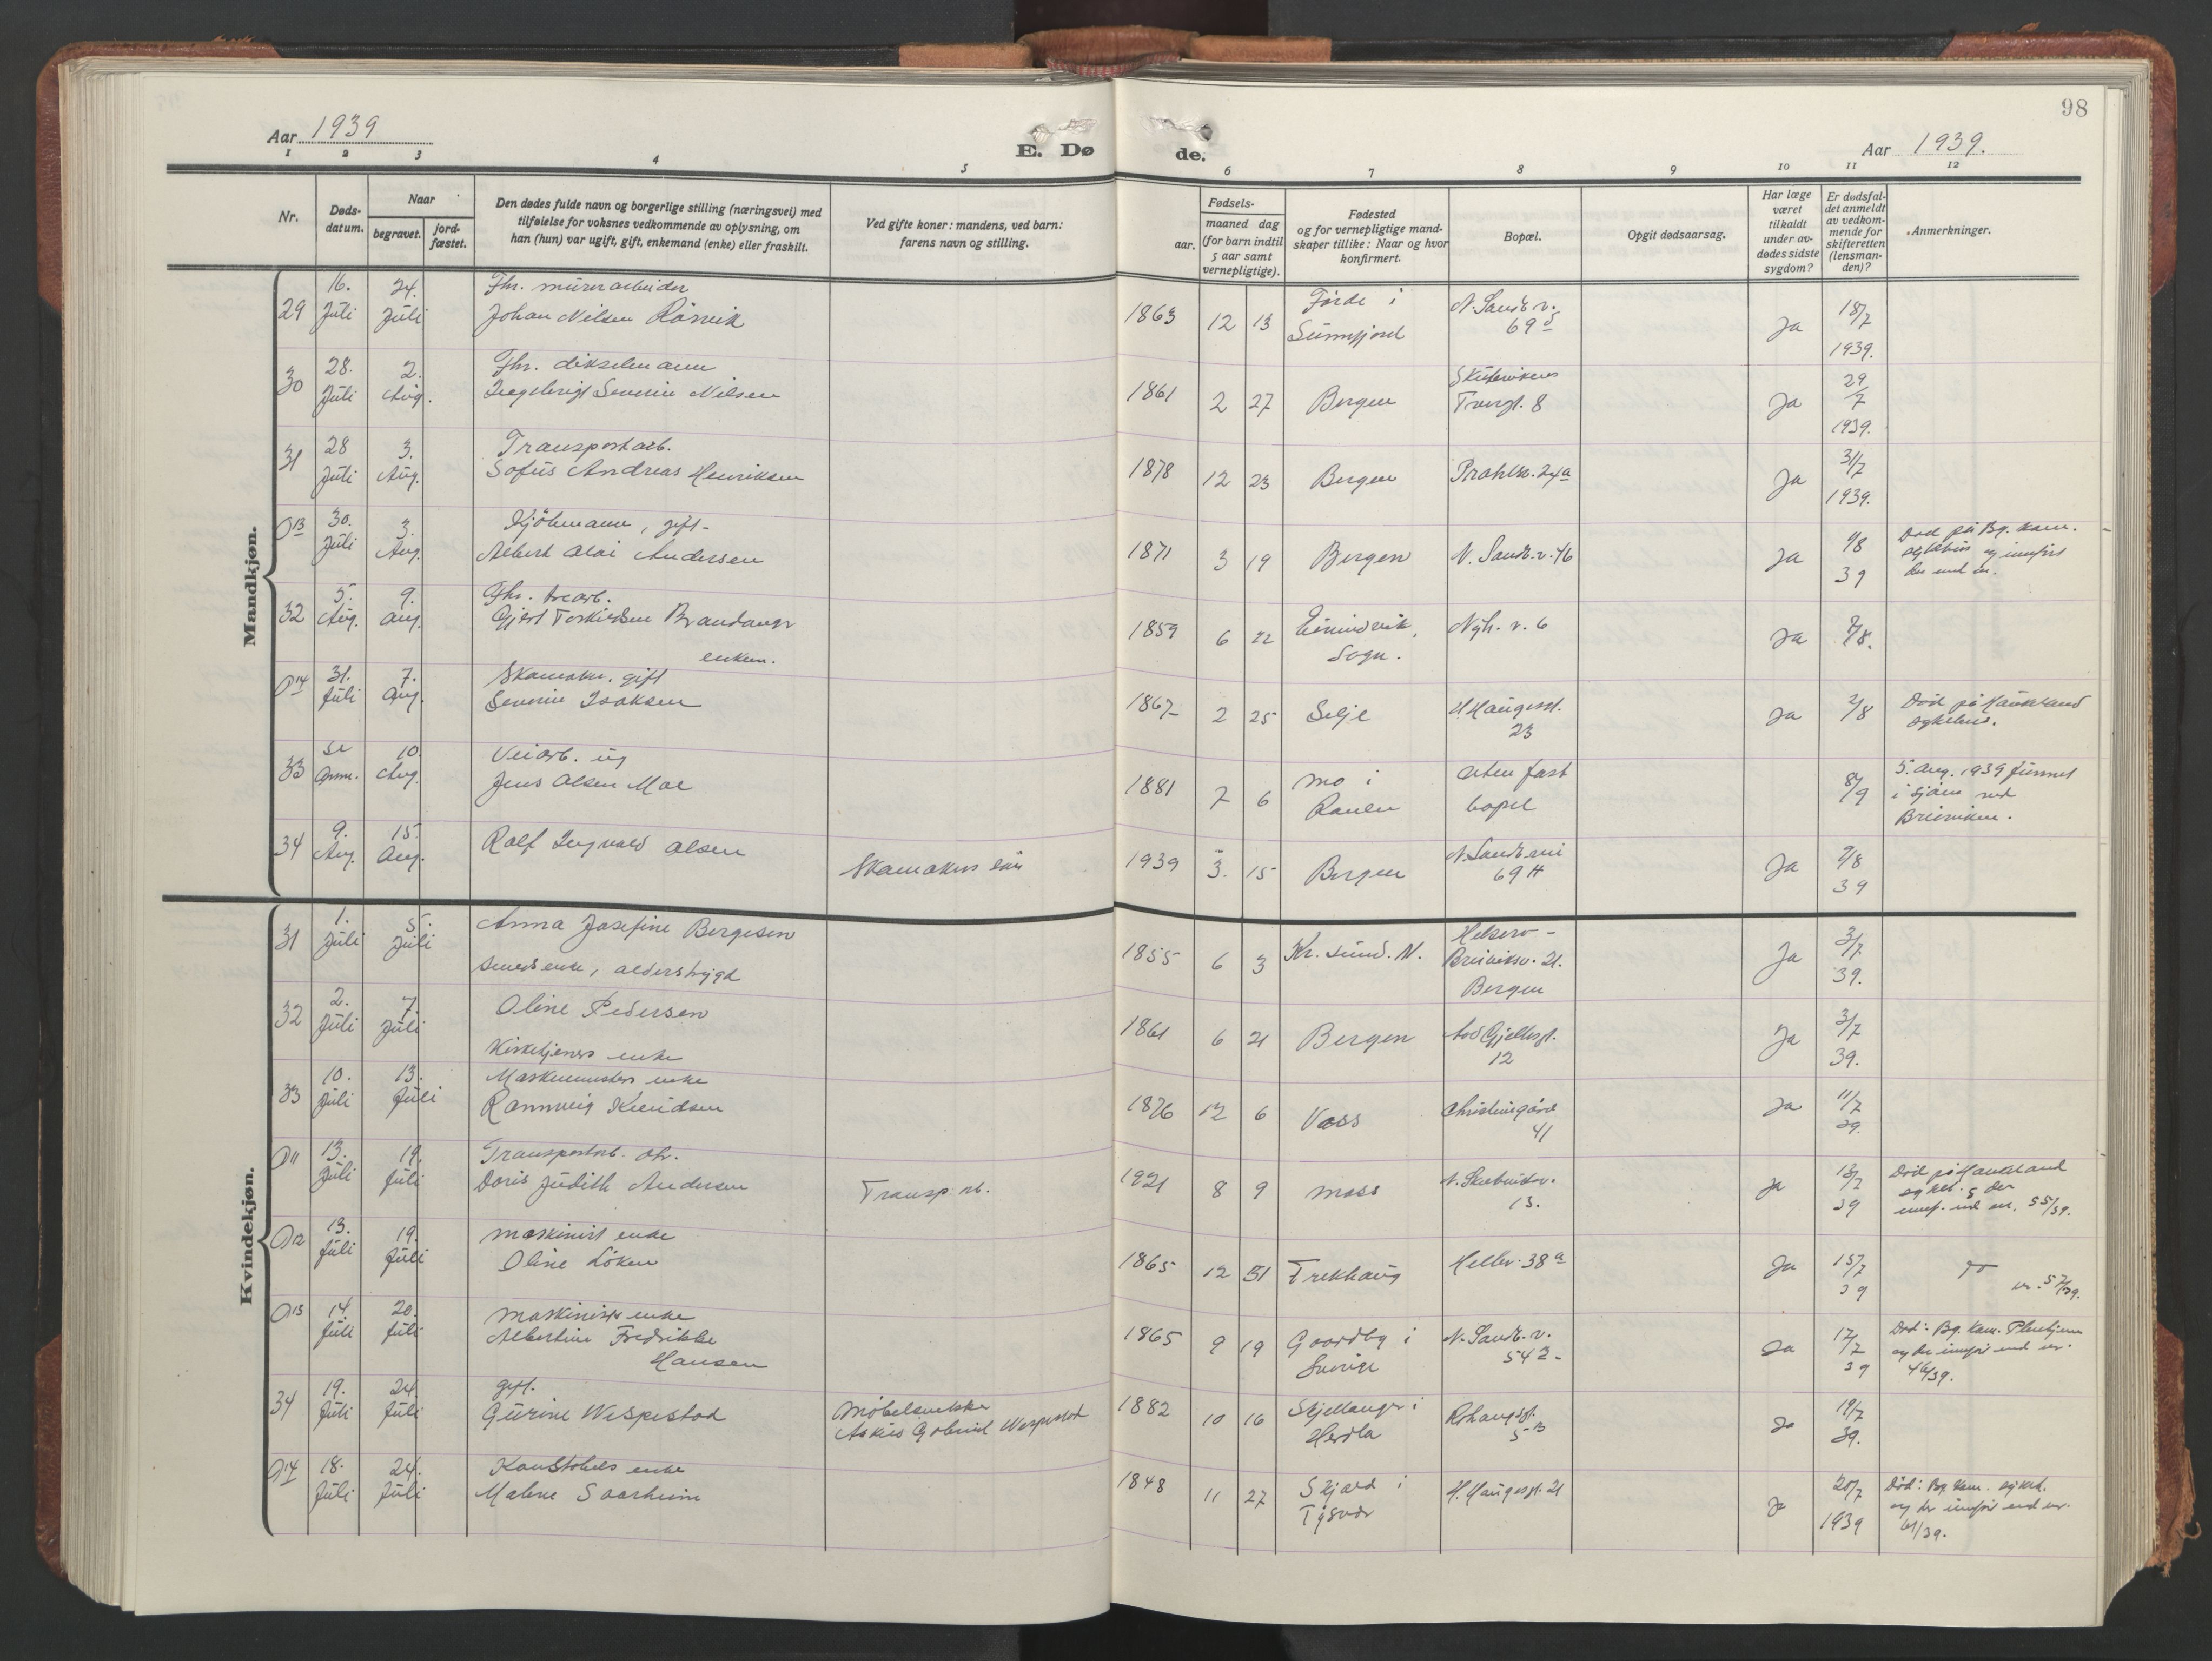 98
Aar 1939
E. Dø
de.
Aar 1939.
1 2 3 4 5 6 7 8 9 10 11 12
Nr.
Døds-
datum.
Naar
begravet.
jord-
fæstet.
Den dødes fulde navn og borgerlige stilling (næringsvei) med
tilføielse for voksnes vedkommende av oplysning, om
han (hun) var ugift, gift, enkemand (enke) eller fraskilt.
Ved gifte koner: mandens, ved barn:
farens navn og stilling.
Fødsels-
aar.
maaned dag
(for barn indtil
5 aar samt
vernepligtige).
Fødested
og for vernepligtige mand-
skaper tillike: Naar og hvor
konfirmert.
Bopæl.
Opgit dødsaarsag.
Har læge
været
tilkaldt
under av-
dødes sidste
sygdom?
Er dødsfal-
det anmeldt
av vedkom-
mende for
skifteretten
(lensman-
den)?
Anmerkninger.
Mandkjøn.
29 16. Juli 24. Juli Fhr. murerarbeider
Johan Nilsen Rörvik 1863 12 13 Förde i
Sunnfjord N. Sandv.v. 69 Ja 18/7
1939.
30 28. Juli 2. Aug. Fhr. dikselmann
Ingebrigt Severin Nilsen 1861 2 27 Bergen Skutevikens
Tverrgt. 8 Ja 29/7
1939.
31 28 Juli 3. Aug. Transportarb.
Sofus Andreas Henriksen 1878 12 23 Bergen Prahlsv. 24a Ja 31/7
1939.
O13 30. Juli 3. Aug. Sjömann, gift
Albert Olai Andersen 1871 3 19 Bergen N. Sandv.v. 46 Ja 1/8
39 Død på Bg. kom.
sykehus og innfört
der
32 5. Aug. 9. Aug. Fhr. trearb.
Gjert Torkildsen Brandanger
enkem. 1859 6 22 Eivindvik,
Sogn. Nyh. v. 6 Ja 7/8.
O14 31. Juli 7. Aug. Skomakm. gift
Severin Isaksen 1867 2 25 Selje H. Haugesgt.
23 Ja 2/8 Död på Haukeland
sykehus.
33 se anm. 10 Aug. Veiarb. ug
Jens Olsen Moe 1881 7 6 Mo i
Ranen Uten fast
bopel 8/9 5. Aug. 1939 funnet
i sjöen ved
Breiviken.
34 9. Aug. 15. Aug. Rolf Ingvald Olsen Skomakers 1939 3. 15 Bergen N. Sandvei
69 H Ja 9/8
39
Kvindekjøn.
31 1. Juli 5. Juli Anna Josefine Bergesen
Smeds enke, alderstrygd 1855 6 3 Kr. sund. N. Helsero -
Breiviksv. 21.
Bergen Ja 3/7
39.
32 2. Juli 7. Juli Oline Pedersen
Kirketjeners enke 1861 6 21 Bergen Aad Gjellesgt.
12 Ja 3/7
39.
33 10. Juli 13. Juli Maskinmesters enke
Rannveig Knudsen 1876 12 6 Voss Christinegård
41 Ja 11/7
39.
O11 13. Juli 19. Juli Transportarb. dtr.
Doris Judith Andersen Transp. arb. 1921 8 9 Moss N. Skuteviksv.
13. Ja 13/7
39 Död på Haukeland
sykeh. & der
innf. und nr. 55/39.
O12 13. Juli 19. Juli Maskinist enke
Oline Löken 1865 12 31 Frekhaug Hellev. 38a Ja 15/7
39 nr. 57/39.
O13 14. Juli 20. Juli Maskinists enke
Albertine Fredrikke
Hansen 1865 9 19 Gaardby i
Sverige N. Sandv.v.
54 Ja 17/7
39 Död: Bg. kom. Pleiehjem
og der innfört und nr.
46/39.
34 19. Juli 24. Juli gift.
Gurine Wespestad Möbelsnekker
Wespestad 1882 10 16 Skjellanger i
Herdla Rohaugsgt.
5B Ja 19/7
39.
O14 18. Juli 24. Juli Konstabels enke
Malene Saarheim 1848 11 27 Skjold i
Tysvær H. Haugesgt. 21 Ja 20/7
1939 Död: Bg. kom. sykeh.
og der innfört und nr.
61/39.